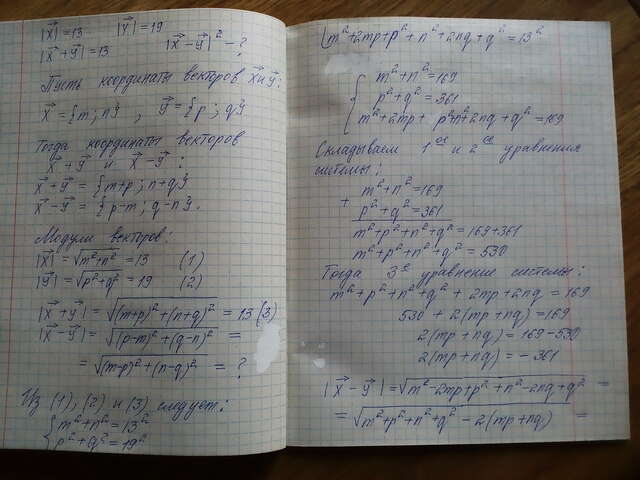 |x⃗|=13 |y⃗|=19
|x⃗+y⃗|=13 |x⃗-y⃗|² - ?
Пусть координаты векторов x⃗ и y⃗:
x⃗ = {m; n}, y⃗ = {p; q}
Тогда координаты векторов
x⃗+y⃗ и x⃗-y⃗:
x⃗+y⃗ = {m+p; n+q}
x⃗-y⃗ = {p-m; q-n}.
Модули векторов:
|x⃗| = √(m²+n²) = 13 (1)
|y⃗| = √(p²+q²) = 19 (2)
|x⃗+y⃗| = √((m+p)²+(n+q)²) = 13 (3)
|x⃗-y⃗| = √((p-m)²+(q-n)²) =
= √((m-p)²+(n-q)²) = ?
Из (1), (2) и (3) следует:
{m²+n² = 13²
p²+q² = 19²
m²+2mp+p²+n²+2nq+q² = 13²
{m²+n² = 169
p²+q² = 361
m²+2mp+p²+n²+2nq+q² = 169
Складываем 1ое и 2ое уравнения
системы:
+ m²+n² = 169
p²+q² = 361
m²+p²+n²+q² = 169+361
m²+p²+n²+q² = 530
Тогда 3е уравнение системы:
m²+p²+n²+q² + 2mp+2nq = 169
530 + 2(mp+nq) = 169
2(mp+nq) = 169-530
2(mp+nq) = -361
|x⃗-y⃗| = √(m²-2mp+p²+n²-2nq+q²) =
= √(m²+p²+n²+q² - 2(mp+nq)) =